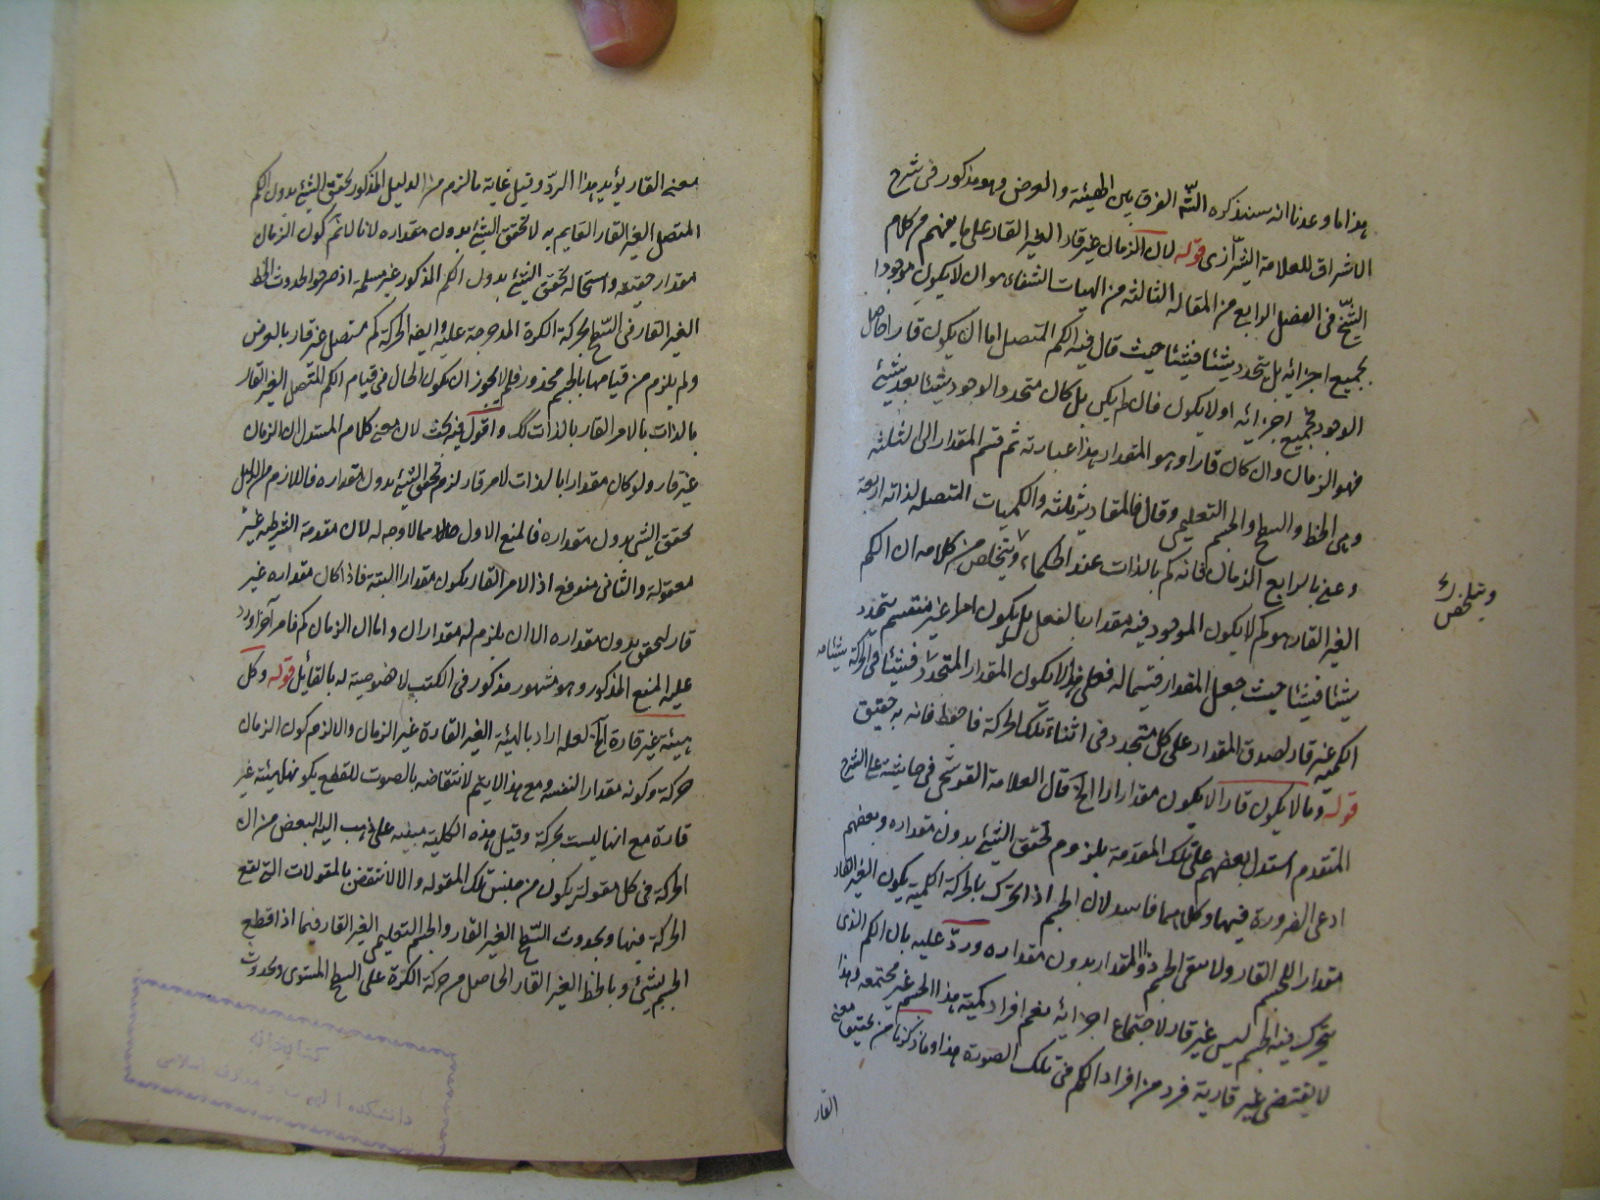 هذا ما وعدنا انه سنذكره الشه الفرق بين الهيئة والعرض وهو مذكور فى شرح
الاشراق للعلامة الشيرازى قوله لان الزمان غير قار الغير القار على ما يفهم من كلام
الشيخ فى الفصل الرابع من المقاله الثالثه من الهيات الشفاء هو ان لا يكون موجودا
بجميع اجزائه بل يتجدد شيئا فشيئا حيث قال فيه الكم المتصل اما ان يكون قارا حاصل
الوجود بجميع اجزائه او لا يكون فان لم يكن بل كان متجدد الوجود شيئا بعد شيئ
فهو الزمان وان كان قارا وهو المقدار هذا عبارته ثم قسم المقدار الى الثلثه
وهى الخط والسطح والجسم التعليمى وقال فالمقادير ثلثه والكميات المتصله لذاته اربعة
وعنى بالرابع الزمان فانه كم بالذات عند الحكماء ويتخلص من كلامه ان الكم
ويتلخص
الغير القار هو كم لا يكون الموجود فيه مقدارا بالفعل بل يكون امرا غير منقسم يتجدد
شيئا فشيئا حيث جعل المقدار قسيما له فعلى هذا لا يكون المقدار المتجدد شيئا فشيئا فى الحركة
الكمية غير قار لصدق المقدار على كل متجدد فى اثناء تلك الحركة فاحفظ فانه به حقيق
قوله وما لا يكون قارا لا يكون مقدارا الخ قال العلامة القوشجى فى حاشيته على الشرح
المتقدم استدل بعضهم على تلك المقدمة بلزوم تحقق الشيئ بدون مقداره وبعضهم
ادعى الضرورة فيها وكلاهما فاسد لان الجسم اذا تحرك بالحركة الكمية يكون الغير القار
مقدارا للجسم القار ولا يبقى الجسم ذو المقدار بدون مقداره ورد عليه بان الكم الذى
يتحرك فيه الجسم ليس غير قار لاجتماع اجزائه نعم افراد كمية هذا الجسم غير مجتمعه وهذا
لا يقتضى غير قارية فرد من افراد الكم فى تلك الصورة هذا وما ذكرنا من تحقيق معنى
القار
معنى القار يؤيد هذا الرد وقيل غاية ما لزم من الدليل المذكور تحقق الشيئ بدون الكم
المتصل الغير القار القايم به لا تحقق الشيئ بدون مقداره لانا لا نم كون الزمان
مقدار حقيقه واستحاله تحقق الشيئ بدون الكم المذكور غير مسلمة اذ صرحوا بحدوث الخط
الغير القار فى السطح بحركة الكرة المدحرجة عليه وايضا الحركة كم متصل غير قار بالعرض
ولم يلزم من قيامها بالجسم محذور فلم لا يجوز ان يكون الحال فى قيام الكم المتصل الغير القار
بالذات بالامر القار بالذات كك واقول فيه بحث لان معنى كلام المستدل ان الزمان
غير قار ولو كان مقدارا بالذات لامر قار لزم تحقق الشيئ بدون مقداره فاللازم من الدليل
تحقق الشيئ بدون مقداره فالمنع الاول مما لا وجه له لان مقدمة الشرطيه غير
معقولة والثانى مندفع اذ الامر القار يكون مقدارا البتة فاذا كان مقداره غير
قار لتحقق بدون مقداره الا ان يلزم له مقداران واما ان الزمان كم فامر آخر اورد
عليه المنع المذكور وهو مشهور مذكور فى الكتب لا خصوصية له بالقائل قوله وكل
هيئة غير قارة الخ لعله اراد بالهيئة الغير القارة غير الزمان والا لزم كون الزمان
حركة وكونه مقدارا لنفسه ومع هذا لا يتم لانتقاضه بالصوت للقطع بكونها هيئة غير
قارة مع انها ليست بحركة وقيل هذه الكلية مبنيه على ما ذهب اليه البعض من ان
الحركة فى كل مقولة يكون من جنس تلك المقوله والا لانتقض بالمقولات التى تقع
الحركة فيها وبحدوث السطح الغير القار والجسم التعليمى الغير القار فيما اذا قطع
الجسم بشيئ وبالخط الغير القار الحاصل من حركة الكرة على السطح المستوى وبحدوث